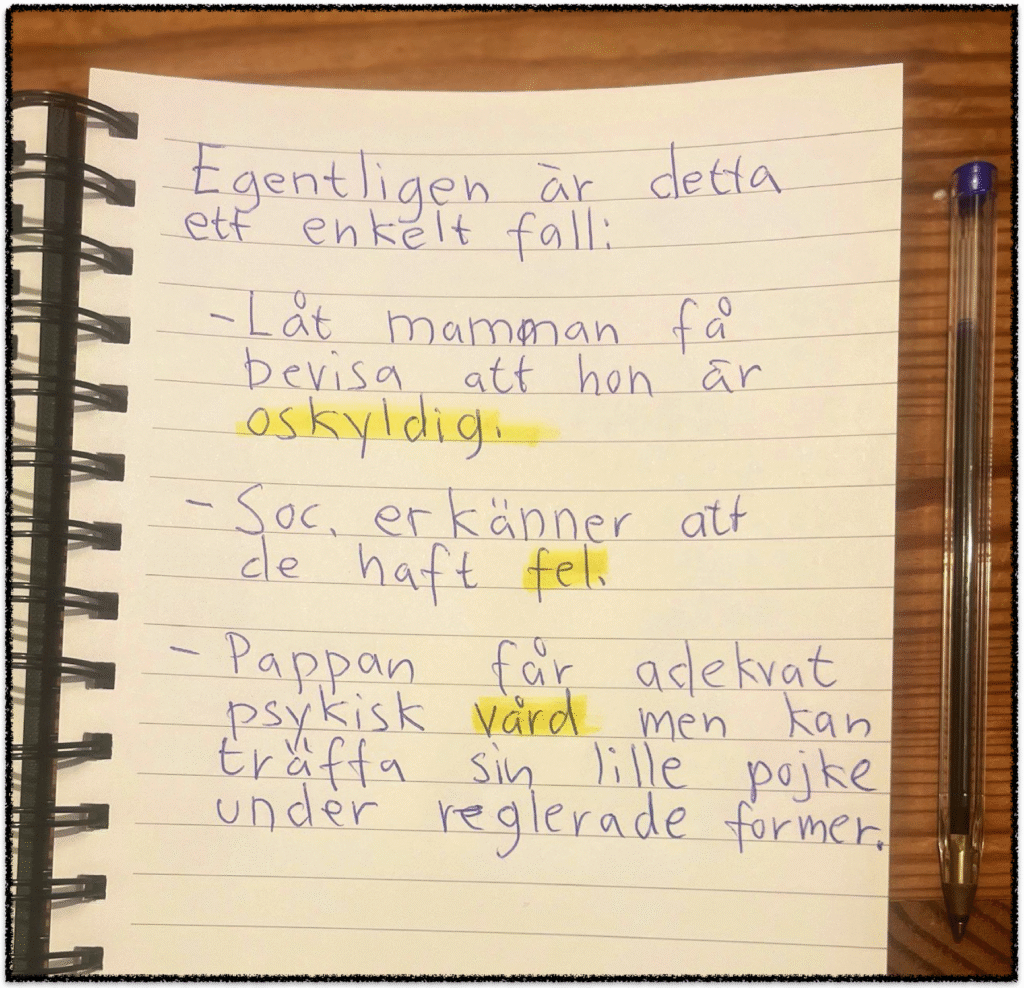 Egentligen är detta
ett enkelt fall:
- Låt mamman få
bevisa att hon är
oskyldig.
- Soc. erkänner att
de haft fel.
- Pappan får adekvat
psykisk vård men kan
träffa sin lille pojke
under reglerade former.